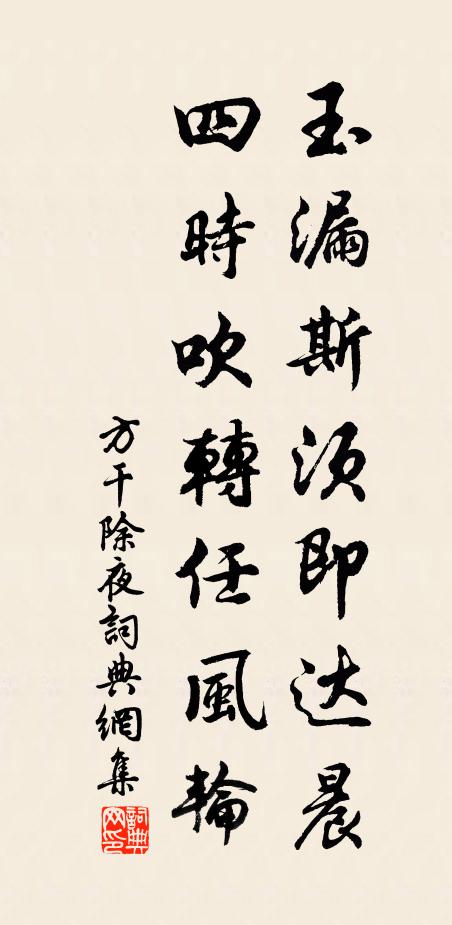 玉漏斯须即达晨
四時吹轉任風輪
方干除夜詞典網集
詞典网印